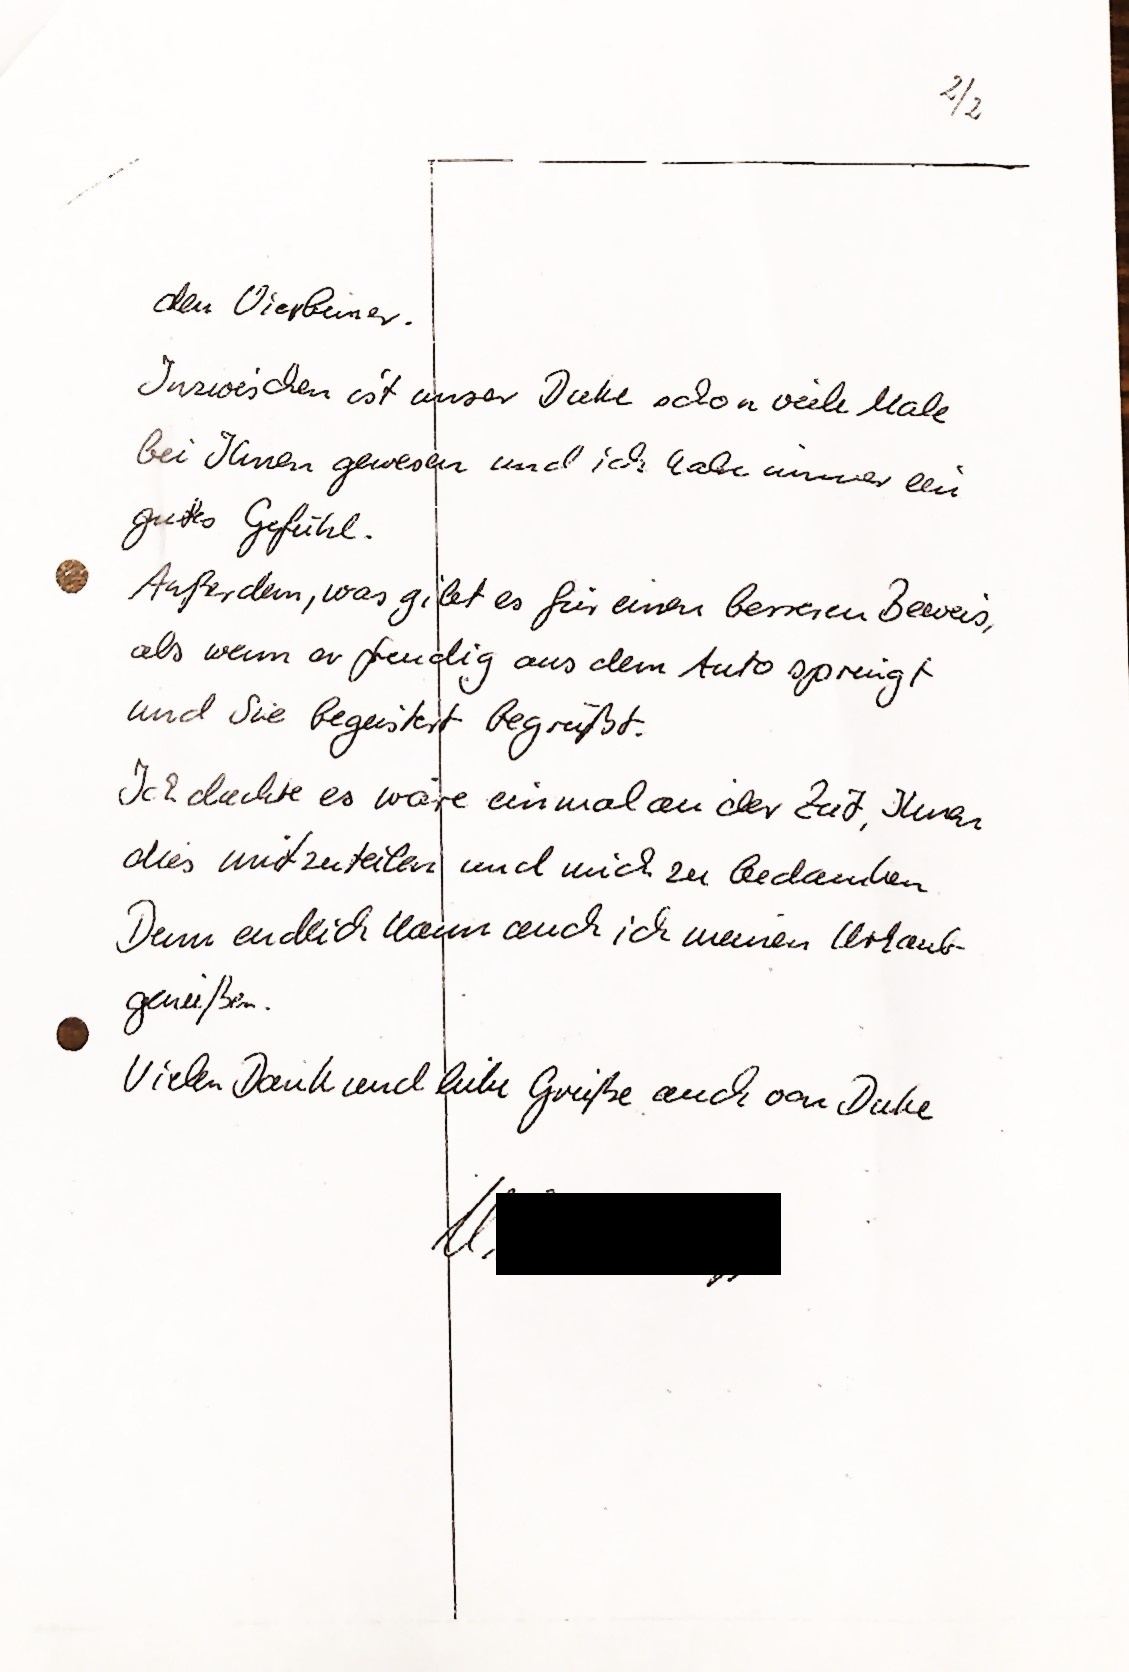 2/2
den Vierbeiner.
Inzwischen ist unser Duke schon viele Male
bei Ihnen gewesen und ich habe immer ein
gutes Gefühl.
Außerdem, was gibt es für einen besseren Beweis,
als wenn er freudig aus dem Auto springt
und Sie begeistert begrüßt.
Ich dachte es wäre einmal an der Zeit, Ihnen
dies mitzuteilen und mich zu bedanken
Denn endlich kann auch ich meinen Urlaub
genießen.
Vielen Dank und liebe Grüße auch von Duke